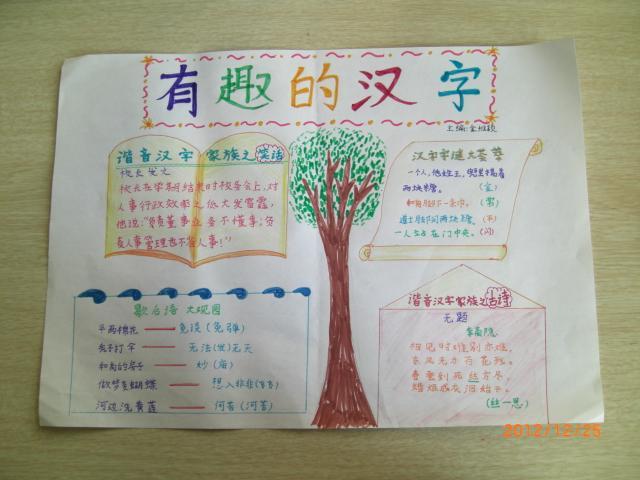 有趣的汉字
主编:金
谐音汉字家族之笑话
校长发之
校长在学期结束时校务会上,对
人事行政效率之低大发雷霆,
他说:"负责董事业务不懂事,负
责人事管理也不省人事!"
汉字字谜大荟萃
一个人,他姓王,兜里揣着
两块糖。(金)
(雷)
两块糖。(平)
一人站在门中央。(闪)
歇后语 大观园
免谈(免弹)
无法(发)无天
和尚的房子——妙(庙)
做梦变蝴蝶——想入非非(飞飞)
河边洗黄莲——何苦(河苦)
谐音汉字家族之古诗
无题
李商隐
相见时难别亦难,
东风无力百花残。
春蚕到死丝方尽,
蜡炬成灰泪始干。
(丝—思)
2012/12/25